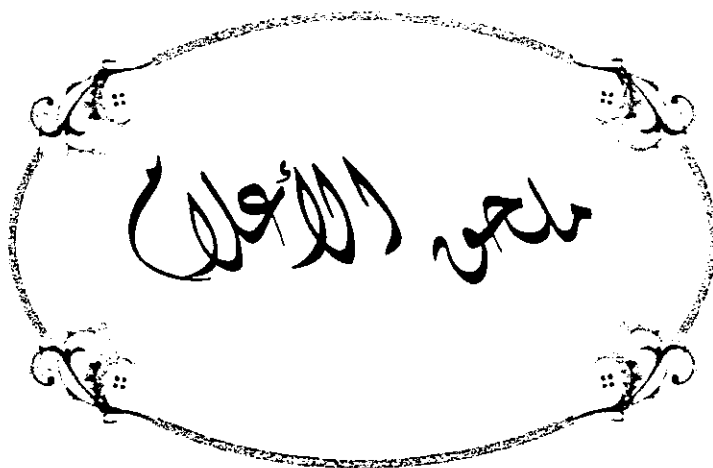 ملحق الأعلام